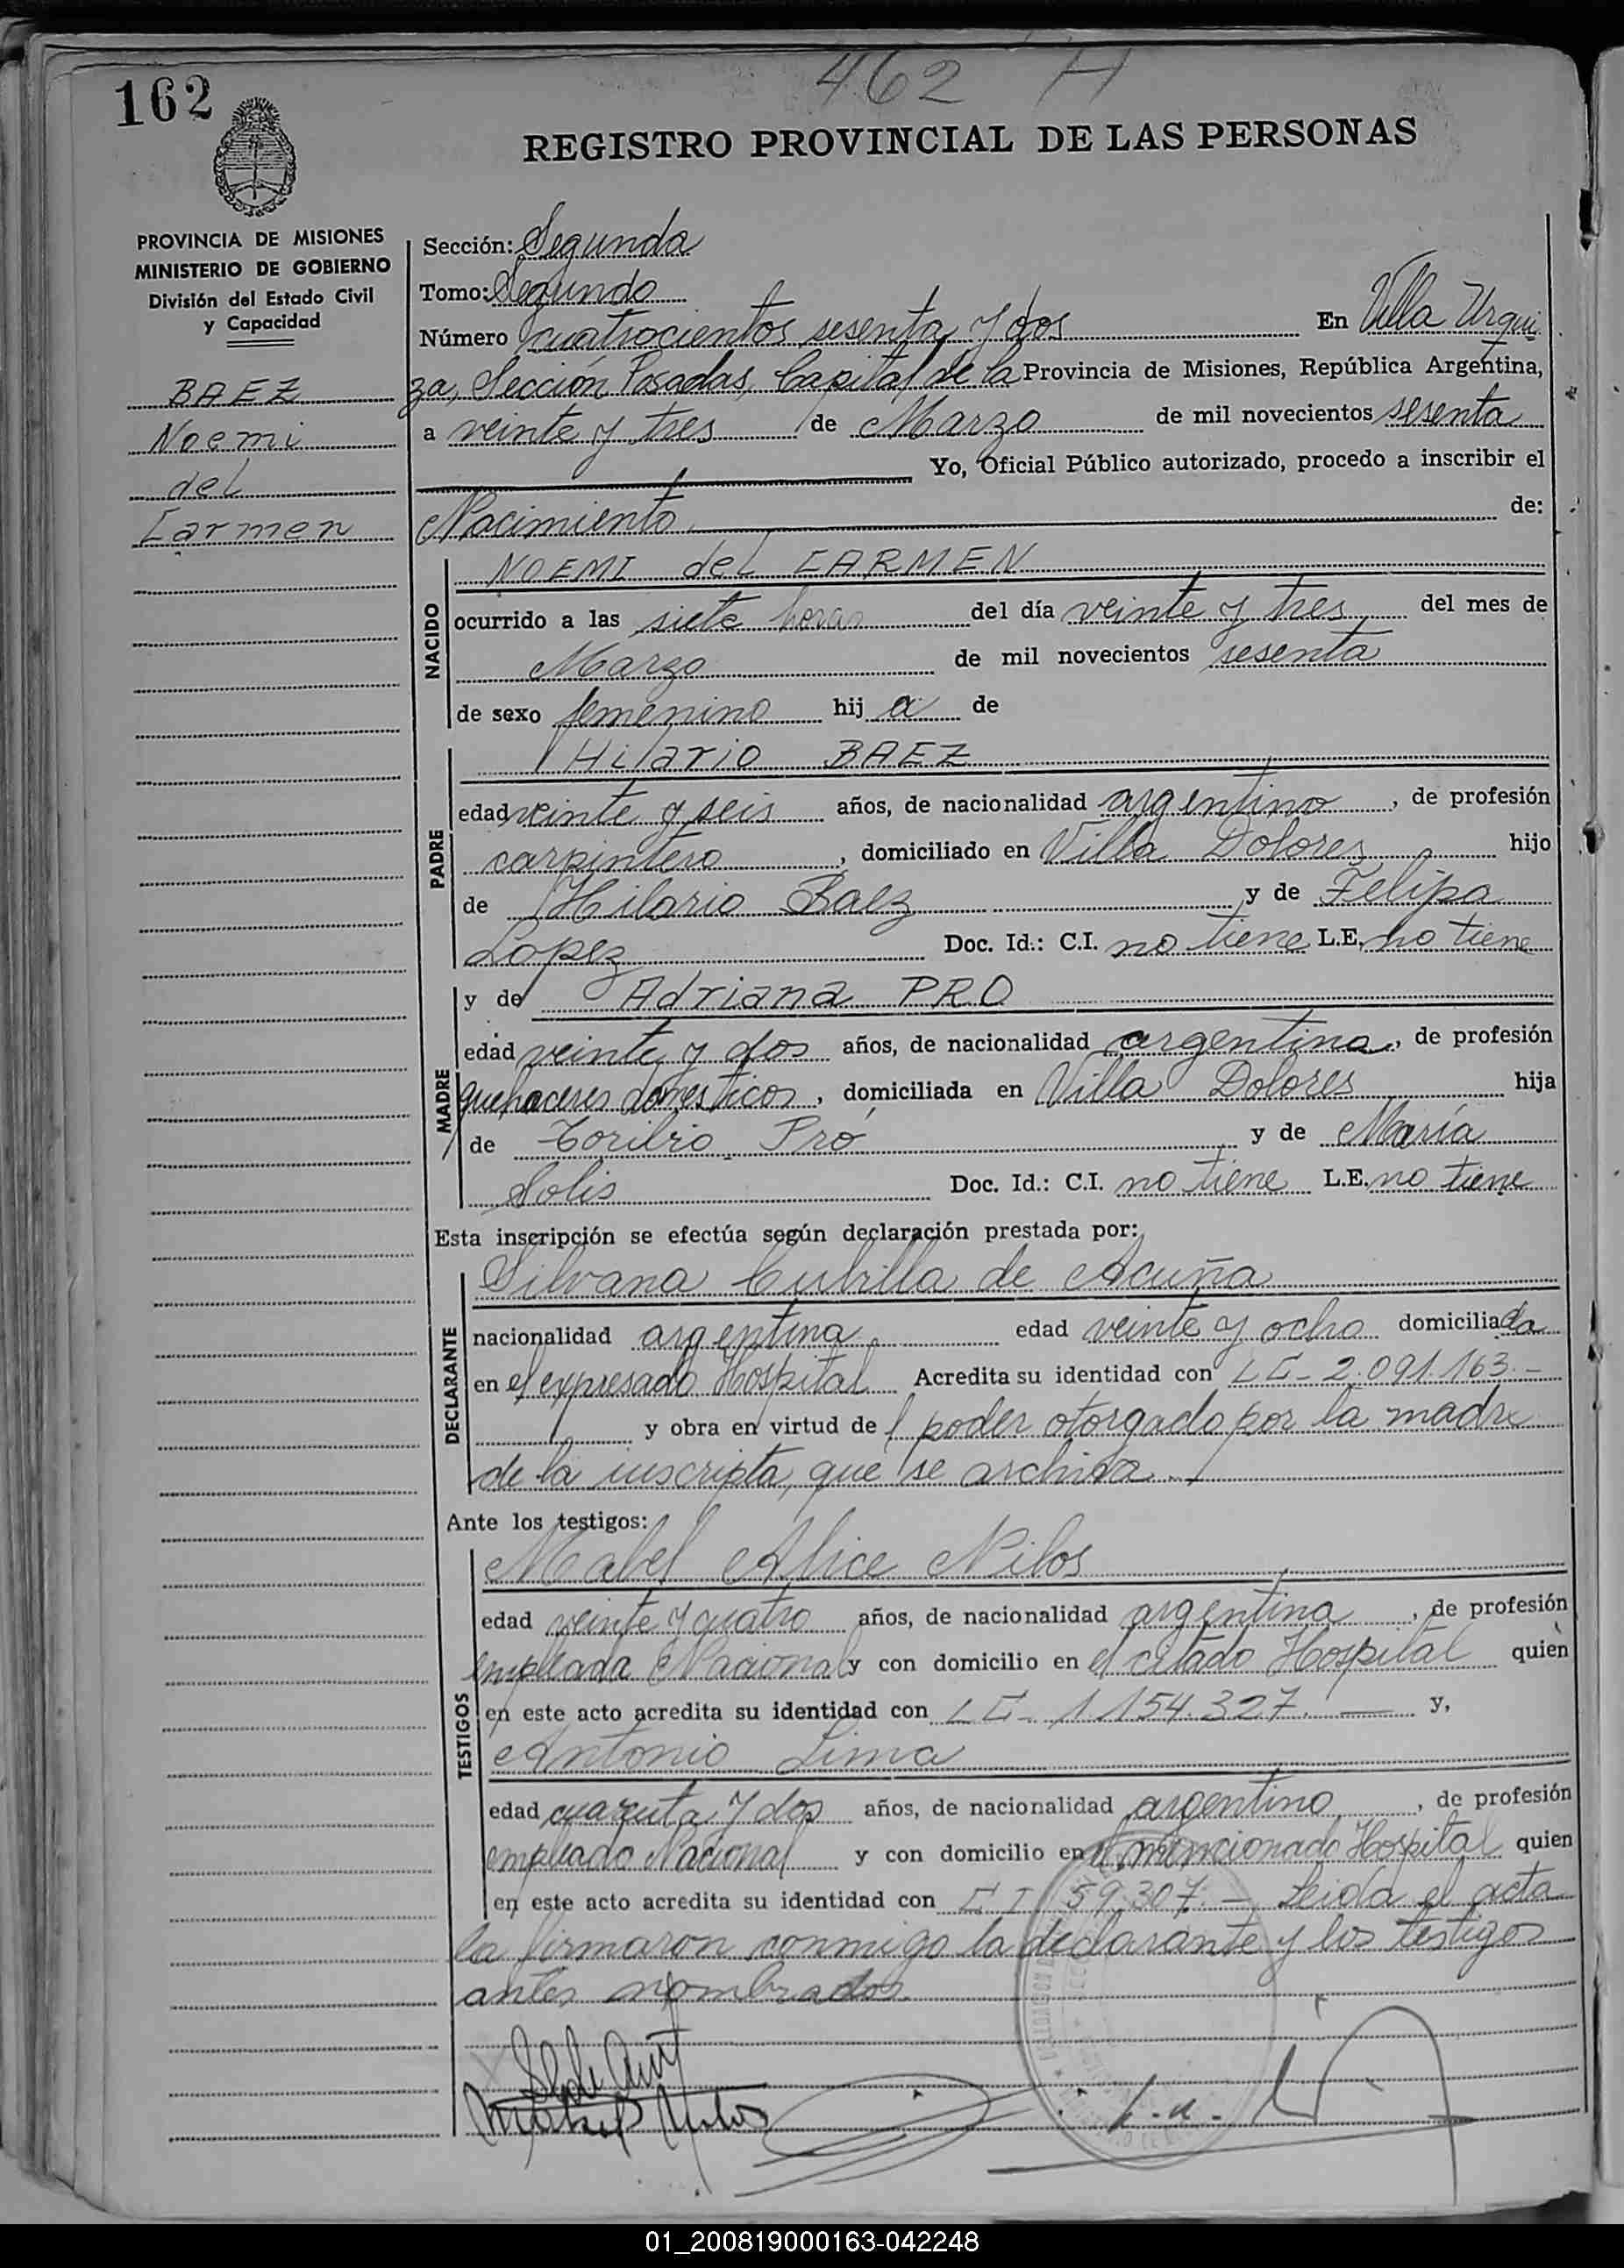 462 H
162
REGISTRO PROVINCIAL DE LAS PERSONAS
PROVINCIA DE MISIONES
MINISTERIO DE GOBIERNO
División del Estado Civil
y Capacidad
BAEZ
Noemi
del
Carmen
Sección: Segunda
Tomo: Segundo
Número cuatrocientos sesenta y dos En Villa Urqui
za, Sección Posadas, Capital de la Provincia de Misiones, República Argentina,
a veinte y tres de Marzo de mil novecientos sesenta
Yo, Oficial Público autorizado, procedo a inscribir el
Nacimiento de:
NACIDO
NOEMI del CARMEN
ocurrido a las siete horas del día veinte y tres del mes de
Marzo de mil novecientos sesenta
de sexo femenino hija de
PADRE
Hilario BAEZ
edad veinte y seis años, de nacionalidad argentino, de profesión
carpintero, domiciliado en Villa Dolores hijo
de Hilario Baez y de Felipa
López Doc. Id.: C.I. no tiene L.E. no tiene
MADRE
y de Adriana PRO
edad veinte y dos años, de nacionalidad argentina, de profesión
quehaceres domesticos, domiciliada en Villa Dolores hija
de Toribio Pró y de María
Solis Doc. Id.: C.I. no tiene L.E. no tiene
Esta inscripción se efectúa según declaración prestada por:
DECLARANTE
Silvana Cubilla de Acuña
nacionalidad argentina edad veinte y ocho domiciliada
en el expresado Hospital Acredita su identidad con LC - 2.091.163.-
y obra en virtud del poder otorgado por la madre
de la inscripta, que se archiva.-
Ante los testigos:
TESTIGOS
Mabel Alice Nilos
edad veinte y cuatro años, de nacionalidad argentina, de profesión
empleada Nacional y con domicilio en el citado Hospital quien
en este acto acredita su identidad con LC - 1.154.327. — y,
Antonio Lima
edad cuarenta y dos años, de nacionalidad argentino, de profesión
empleado Nacional y con domicilio en el mencionado Hospital quien
en este acto acredita su identidad con C I 59.307.- Leida el acta
la firmaron conmigo la declarante y los testigos
antes nombrados.
01_200819000163-042248